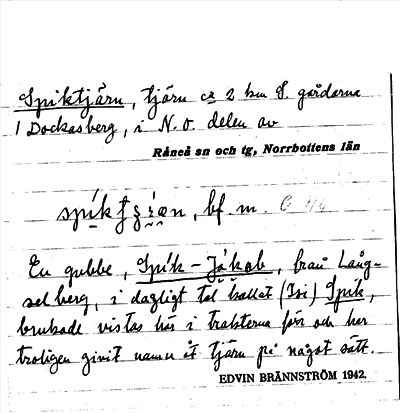 Spiktjärn, tjärn ca 2 km S. gårdarna
i Dockasberg, i N.O. delen av
Råneå sn och tg, Norrbottens län
bf. m.
En gubbe, Spik-Jakob, från Lång-
sel berg, i dagligt tal kallat (Isi) Spik,
brukade vistas här i trakterna förr och har
troligen givit namn åt tjärn på något sätt.
EDVIN BRÄNNSTRÖM 1942.